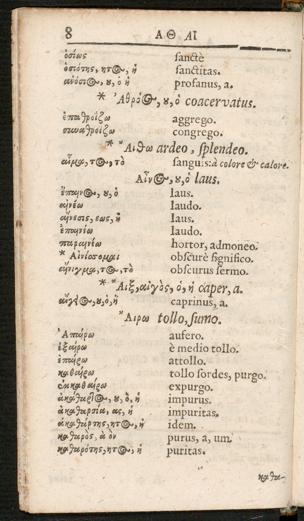 8 Α Θ ΑΙ
ὁσίως sanctè
ὁσιότης, ητος, ἡ sanctitas.
ἀνόσιος, ου, ὁ ἡ profanus, a.
* Ἀθρόος, ου, ὁ coacervatus.
ἐπαθροίζω aggrego.
συναθροίζω congrego.
* Αἴθω ardeo, splendeo.
αἷμα, τος, τὸ sanguis: à colore & calore.
Αἶνος, ου, ὁ laus.
ἔπαινος, ου, ὁ laus.
αἰνέω laudo.
αἴνεσις, εως, ἡ laus.
ἐπαινέω laudo.
παραινέω hortor, admoneo.
* Αἰνίσσομαι obscurè significo.
αἴνιγμα, τος, τὸ obscurus sermo.
* Αἲξ, αἰγὸς, ὁ, ἡ caper, a.
αἴγειος, ου, ὁ, ἡ caprinus, a.
Αἴρω tollo, sumo.
Ἀπαίρω aufero.
ἐξαίρω è medio tollo.
ἐπαίρω attollo.
καθαίρω tollo sordes, purgo.
ἐκκαθαίρω expurgo.
ἀκάθαρτος, ου, ὁ, ἡ impurus.
ἀκαθαρσία, ας, ἡ impuritas.
ἀκαθάρτης, ητος, ἡ idem.
καθαρὸς, ὰ ὸν purus, a, um.
καθαρότης, ητος, ἡ puritas.
καθα-